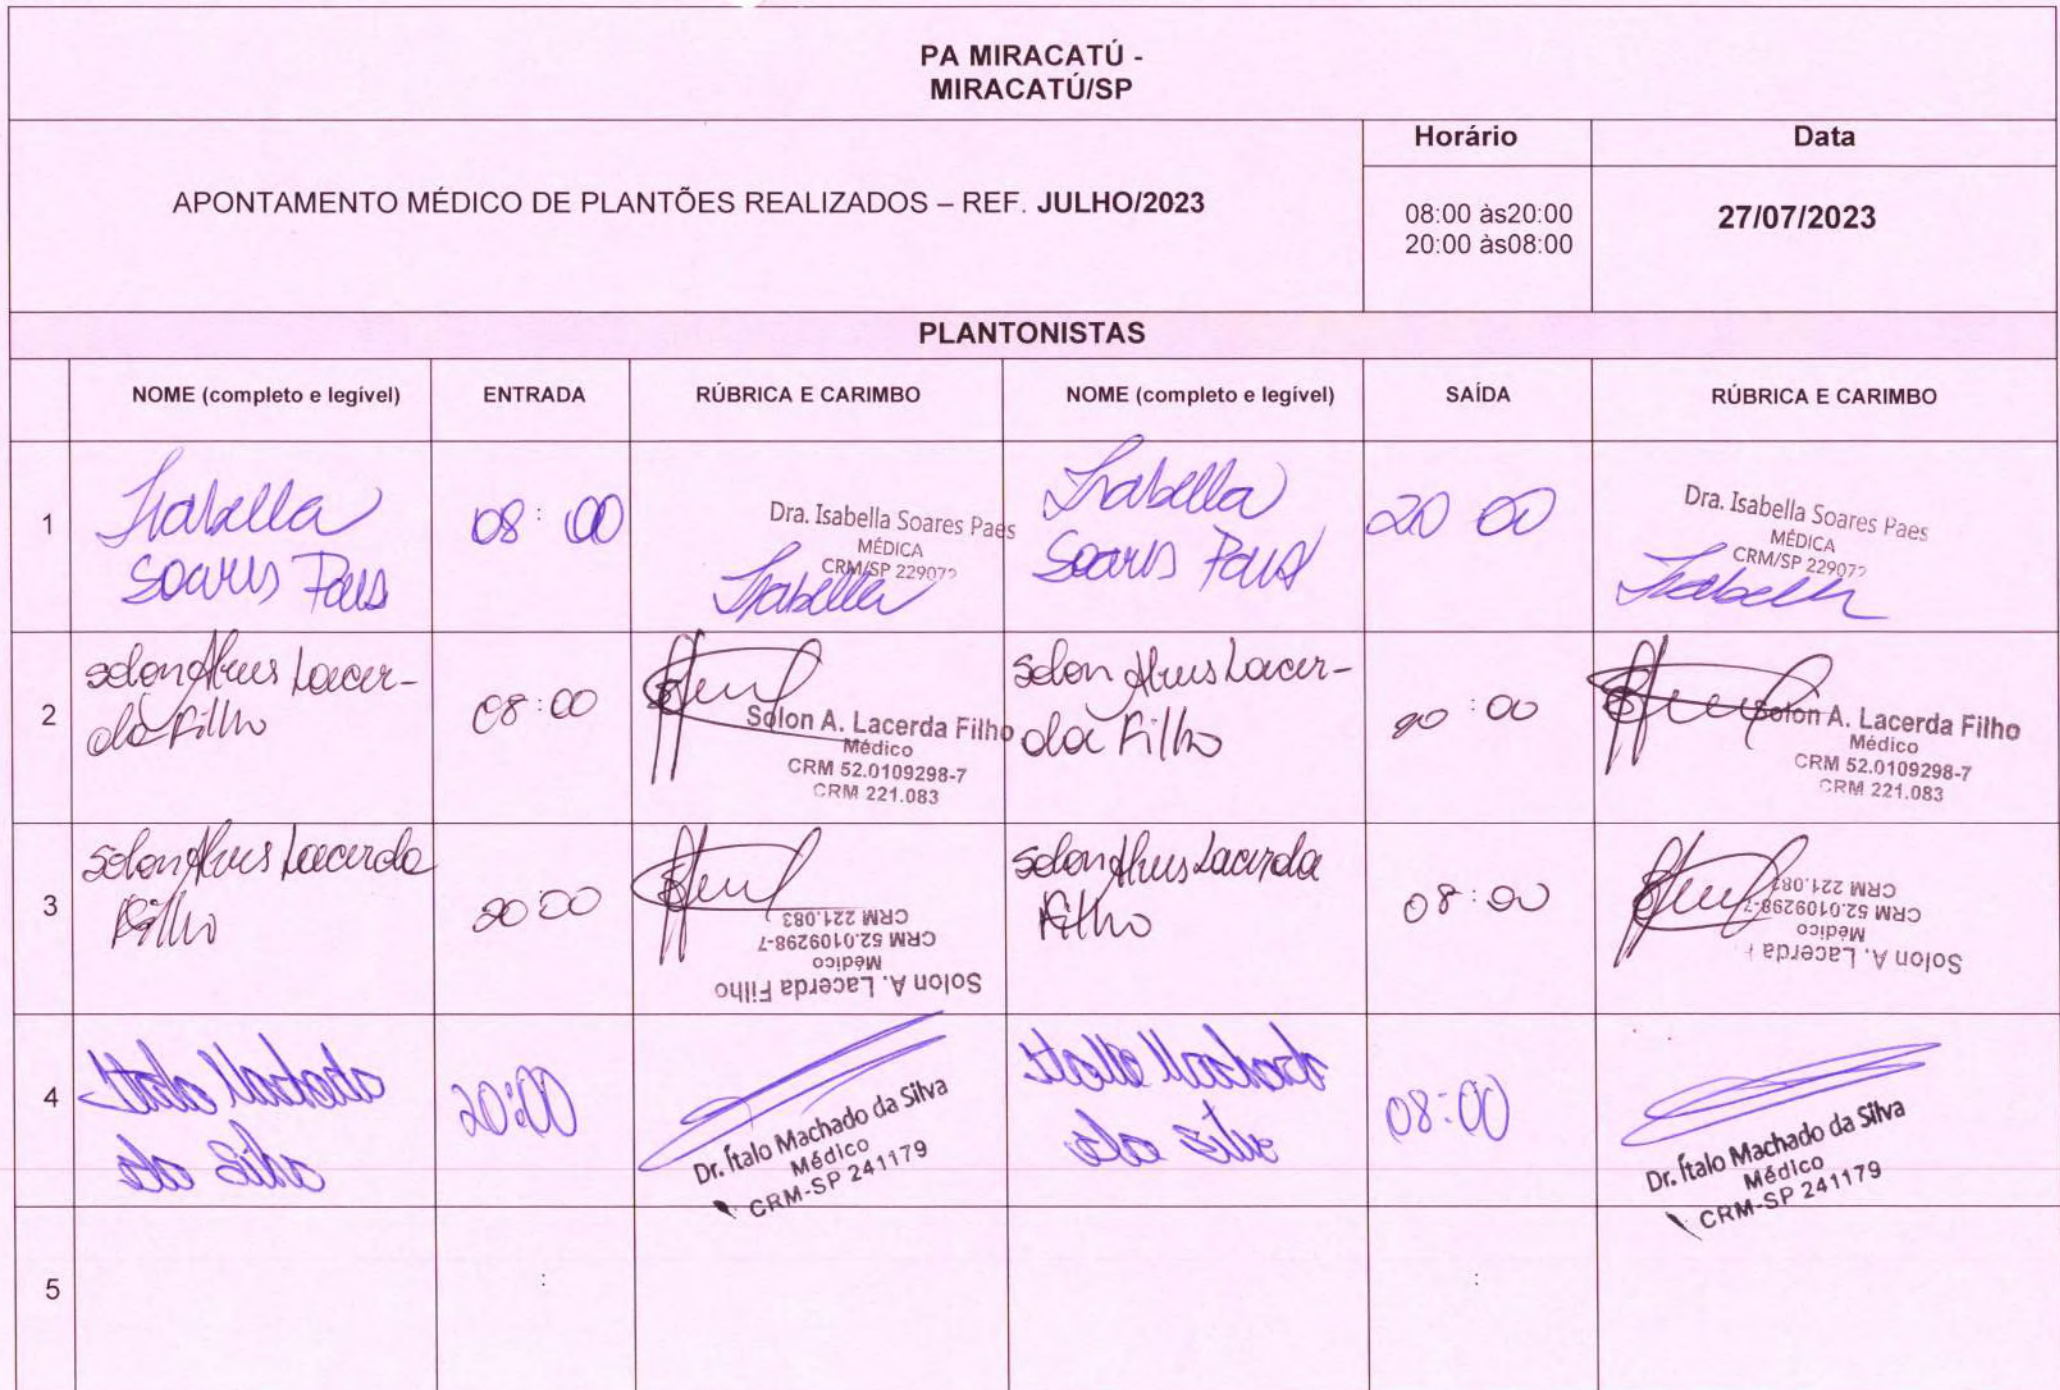 PA MIRACATÚ -
MIRACATÚ/SP
APONTAMENTO MÉDICO DE PLANTÕES REALIZADOS – REF. JULHO/2023
Horário
Data
08:00 às20:00
20:00 às08:00
27/07/2023
PLANTONISTAS
NOME (completo e legível)
ENTRADA
RÚBRICA E CARIMBO
NOME (completo e legível)
SAÍDA
RÚBRICA E CARIMBO
1
Isabella
Soares Paes
08:00
Dra. Isabella Soares Paes
MÉDICA
CRM/SP 229072
Isabella
Isabella
Soares Paes
20 00
Dra. Isabella Soares Paes
MÉDICA
CRM/SP 229072
Isabella
2
Solon Alves Lacer-
da Filho
08:00
Solon A. Lacerda Filho
Médico
CRM 52.0109298-7
CRM 221.083
Solon Alves Lacer-
da Filho
20:00
Solon A. Lacerda Filho
Médico
CRM 52.0109298-7
CRM 221.083
3
Solon Alves Lacerda
Filho
20:00
Solon A. Lacerda Filho
Médico
CRM 52.0109298-7
CRM 221.083
Solon Alves Lacerda
Filho
08:00
Solon A. Lacerda F
Médico
CRM 52.0109298-7
CRM 221.083
4
Italo Machado
da Silva
20:00
Dr. Ítalo Machado da Silva
Médico
CRM-SP 241179
Italo Machado
da Silva
08:00
Dr. Ítalo Machado da Silva
Médico
CRM-SP 241179
5
:
: